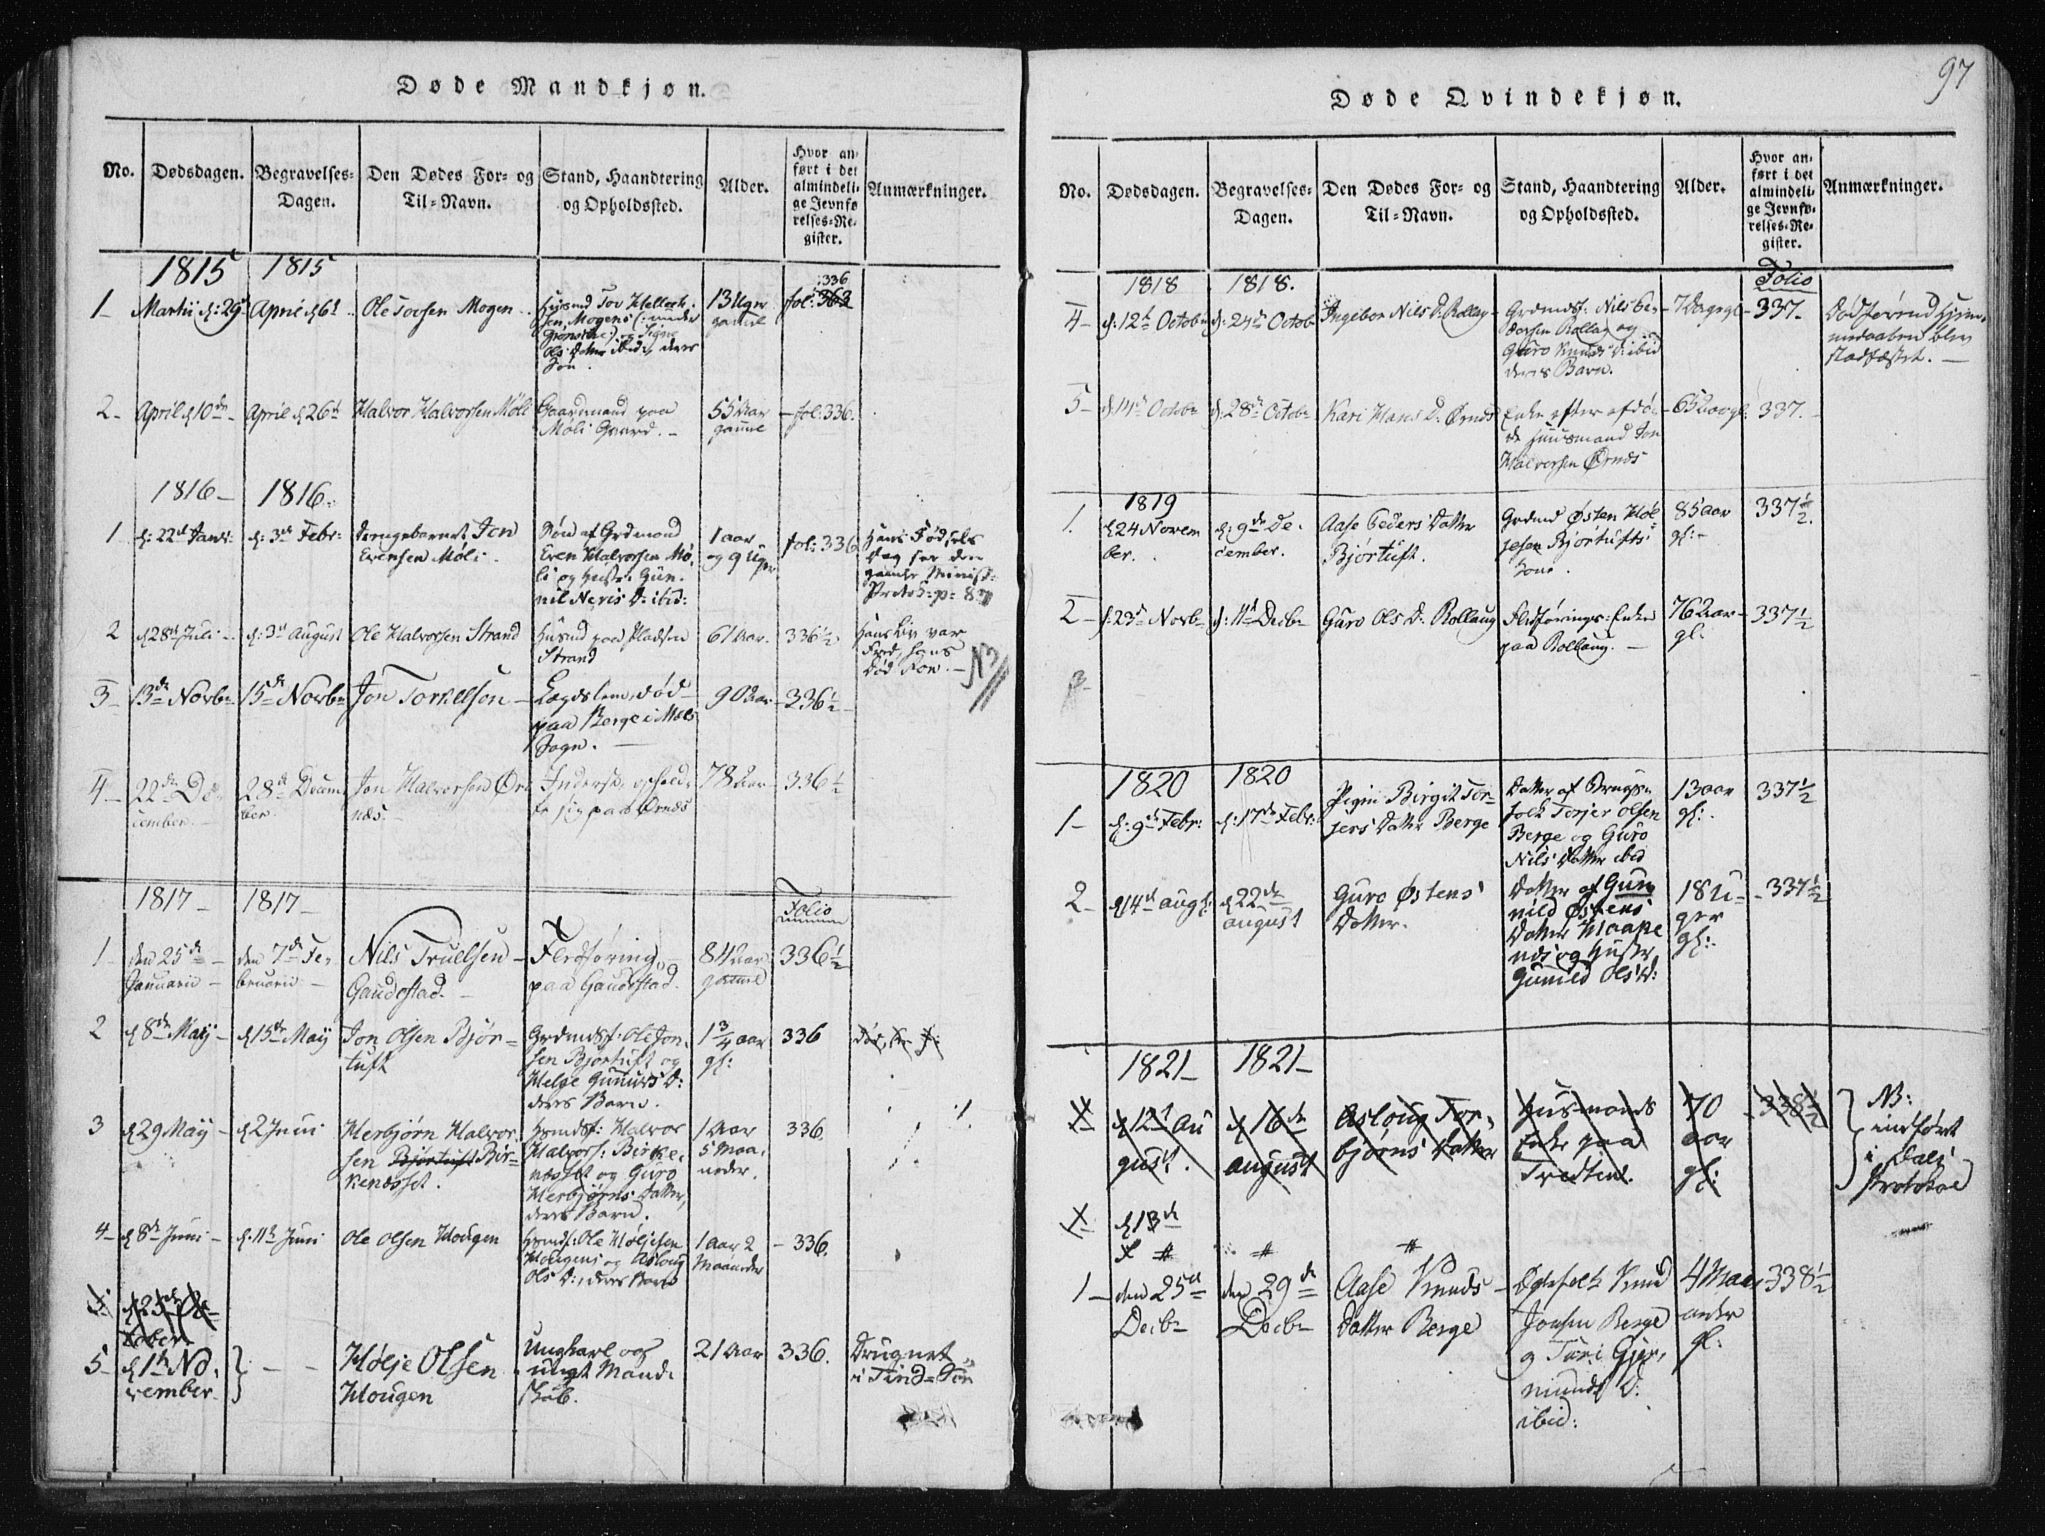 97
Døde Mandkjøn.
No.
Dødsdagen.
Begravelses-
Dagen.
Den Dødes For- og
Til-Navn.
Stand, Haandtering
og Opholdssted.
Alder.
Hvor an-
ført i det
almindeli-
ge Jevnfø-
relses-Re-
gister.
Anmærkninger.
1815 1815
1 Martii d: 29 April d 6 Ole Torsen Mogen 13 Uger
gamle fol: 336
2 April d 10de April d 26 Halvor Halvorsen Møli
Gaardmand paa
Møli Gaard.
55 Aar
gamle
fol: 336.
1816 1816
1 d: 22 Janr: d: 3 Febr: Jon
Evensen Møli
Søn af Grdmand
Even Halvorsen Mø-
li og Hustr: Gun-
nil Neris D: ibid:
1 aar
og 9 Uger
fol: 336
Hans Fødsels
Dag see den
gamle Minist:
Protok: p: 87
2 d 28 Juli d: 3 August Ole Halvorsen Strand
Husmd paa Pladsen
Strand
61 Aar. 336½
Hans Liv var
Fred, hans
Død Fow.
NB
3 13de Novbr 15de Novbr Jon Torkelsen
Lægdslem, død
paa Berge i Mæls
Sogn.
90 Aar 336½
4 22de De-
cember
28de Decem-
ber
Jon Halvorsen Ør-
næs.
paa Ørnæs
78 Aar 336½
1817 1817 Folio
1 den 25de
Januarii
den 7de Fe-
bruarii
Nils Truelsen
Gaudestad.
Fledføring
paa Gaudestad
84 Aar
gamle
336½
2 d 8de May d 15de May Jon Olsen Bjør-
tuft
Grdmdsf: Ole Jon-
sen Bjørtuft og
Helge Gunurs D:
deres Barn.
1¾ aar
gl:
336
3 d 29 May d 2 Juni Herbjørn Halvor-
sen Bjørtuft Bir-
kenæsset.
Halvor
Halvors: Birke-
næsset og Guro
Herbjørns Datter,
deres Barn.
1 Aar
5 Maa-
neder.
336.
4 d 8de Juni d: 11te Juni Ole Olsen Hougen
Ole Høljesen
Hougens og Aslaug
Ols D:, deres Barn
1 Aar 2
Maaneder
336.
5 d 1te No-
vember
Hølje Olsen
Hougen
Ungkarl og
ungt Mand-
skab.
21 Aar 336.
Drugnet
i Tind-Søn
Døde Qvindekjøn.
No.
Dødsdagen.
Begravelses-
Dagen.
Den Dødes For- og
Til-Navn.
Stand, Haandtering
og Opholdssted.
Alder.
Hvor an-
ført i det
almindeli-
ge Jevnfø-
relses-Re-
gister.
Anmærkninger.
1818 1818. Folio
4 d: 12te Octobr d: 24de Octobr Ingebor Nils D. Rollag
Grdmdsf: Nils Pe-
dersen Rollag og
Guro Knuds D: ibid
deres Barn.
7 Dage gl 337
Dødførend Hjem-
medaaben blev
stadfæstet.
5 d 14de Octobr d: 28de Octobr Kari Hans D: Ørnæs
Enke efter afdø-
de Huusmand Jon
Halvorsen Ørnæs
65 Aar gl: 337.
1819
1. d 24 Novem
ber.
d: 9de De-
cember.
Aase Peders Datter
Bjørtuft.
Grdmd Østen Høl-
jesen Bjørtufts
Kone
85 aar
gl:
337½.
2 d: 23de Novbr d: 11te Decbr Guro Ols D. Rollaug
Fledførings-Enke
paa Rollaug.
76 Aar
gl:
337½
1820 1820
1 d: 9de Febr: d: 17de Febr: Pigen Birgit Tor-
jers Datter Berge
Datter af Brugs-
folk Torjer Olsen
Berge og Guro
Nils Datter ibid
13 aar
gl:
337½
2 d 14de aug: d 22de
august
Guro Østens
Datter.
Datter af Gun-
nild Østens
Datter Haake
næs og Huster
Gunild Ols D:
18 U-
ger
gl:
337½
1821 1821
d 12te Au
gust.
d 16de
august
Asloug Tor-
bjørns Datter
Husmands
Enke paa
Tredten.
70
aar
gl:
338½
NB:
indført
i Dals
Protokol
d 13de
1 den 25de
Decbr
den 29de
Decbr
Aase Knuds
Datter Berge
Knud
Jonsen Berge
og Turi Gjer-
munds D:
ibid:
4 Maa-
neder
gl:
338½